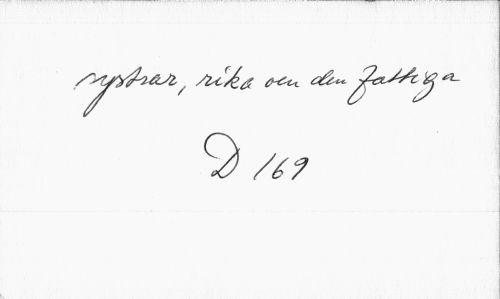 systrar, rika och den fattiga
D 169